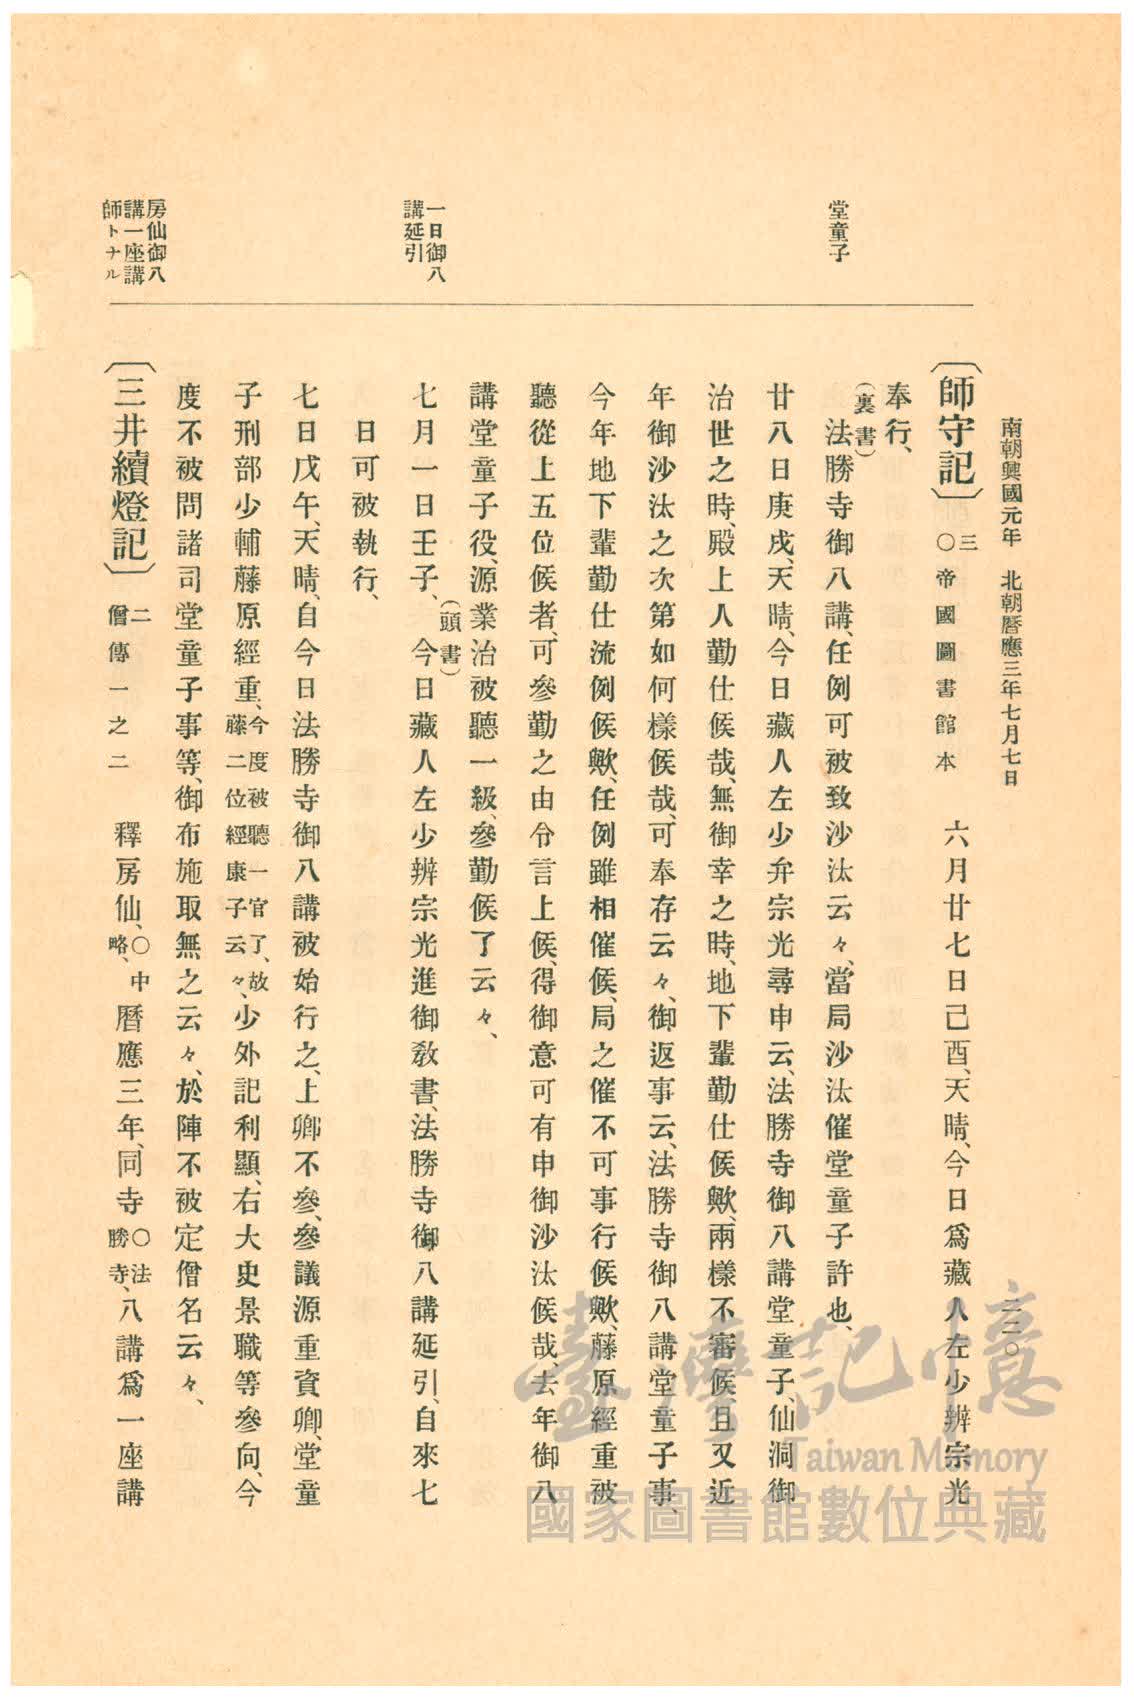 南朝興國元年　北朝曆應三年七月七日
一二〇
堂童子
一日御八
講延引
房仙御八
講一座講
師トナル
〔師守記〕三〇帝國圖書館本　六月廿七日己酉、天晴、今日爲藏人左少辨宗光
奉行、
（裏書）
法勝寺御八講、任例可被致沙汰云々、當局沙汰催堂童子許也、
廿八日庚戌、天晴、今日藏人左少弁宗光尋申云、法勝寺御八講堂童子、仙洞御
治世之時、殿上人勤仕候哉、無御幸之時、地下輩勤仕候歟、兩樣不審候、且又近
年御沙汰之次第如何樣候哉、可奉存云々、御返事云、法勝寺御八講堂童子事、
今年地下輩勤仕流例候歟、任例雖相催候、局之催不可事行候歟、藤原經重被
聽從上五位候者、可參勤之由令言上候、得御意可有申御沙汰候哉、去年御八
講堂童子役、源業治被聽一級、參勤候了云々、
（頭書）
七月一日壬子、今日藏人左少辨宗光進御敎書、法勝寺御八講延引、自來七
日可被執行、
七日戊午、天晴、自今日法勝寺御八講被始行之、上卿不參、參議源重資卿、堂童
子刑部少輔藤原經重、今度被聽一官了、故藤二位經康子云々、少外記利顯、右大史景職等參向、今
度不被問諸司堂童子事等、御布施取無之云々、於陣不被定僧名云々、
〔三井續燈記〕二僧傳一之二　釋房仙、〇中略、曆應三年、同寺〇法勝寺、八講爲一座講
臺灣記憶
Taiwan Memory
國家圖書館數位典藏